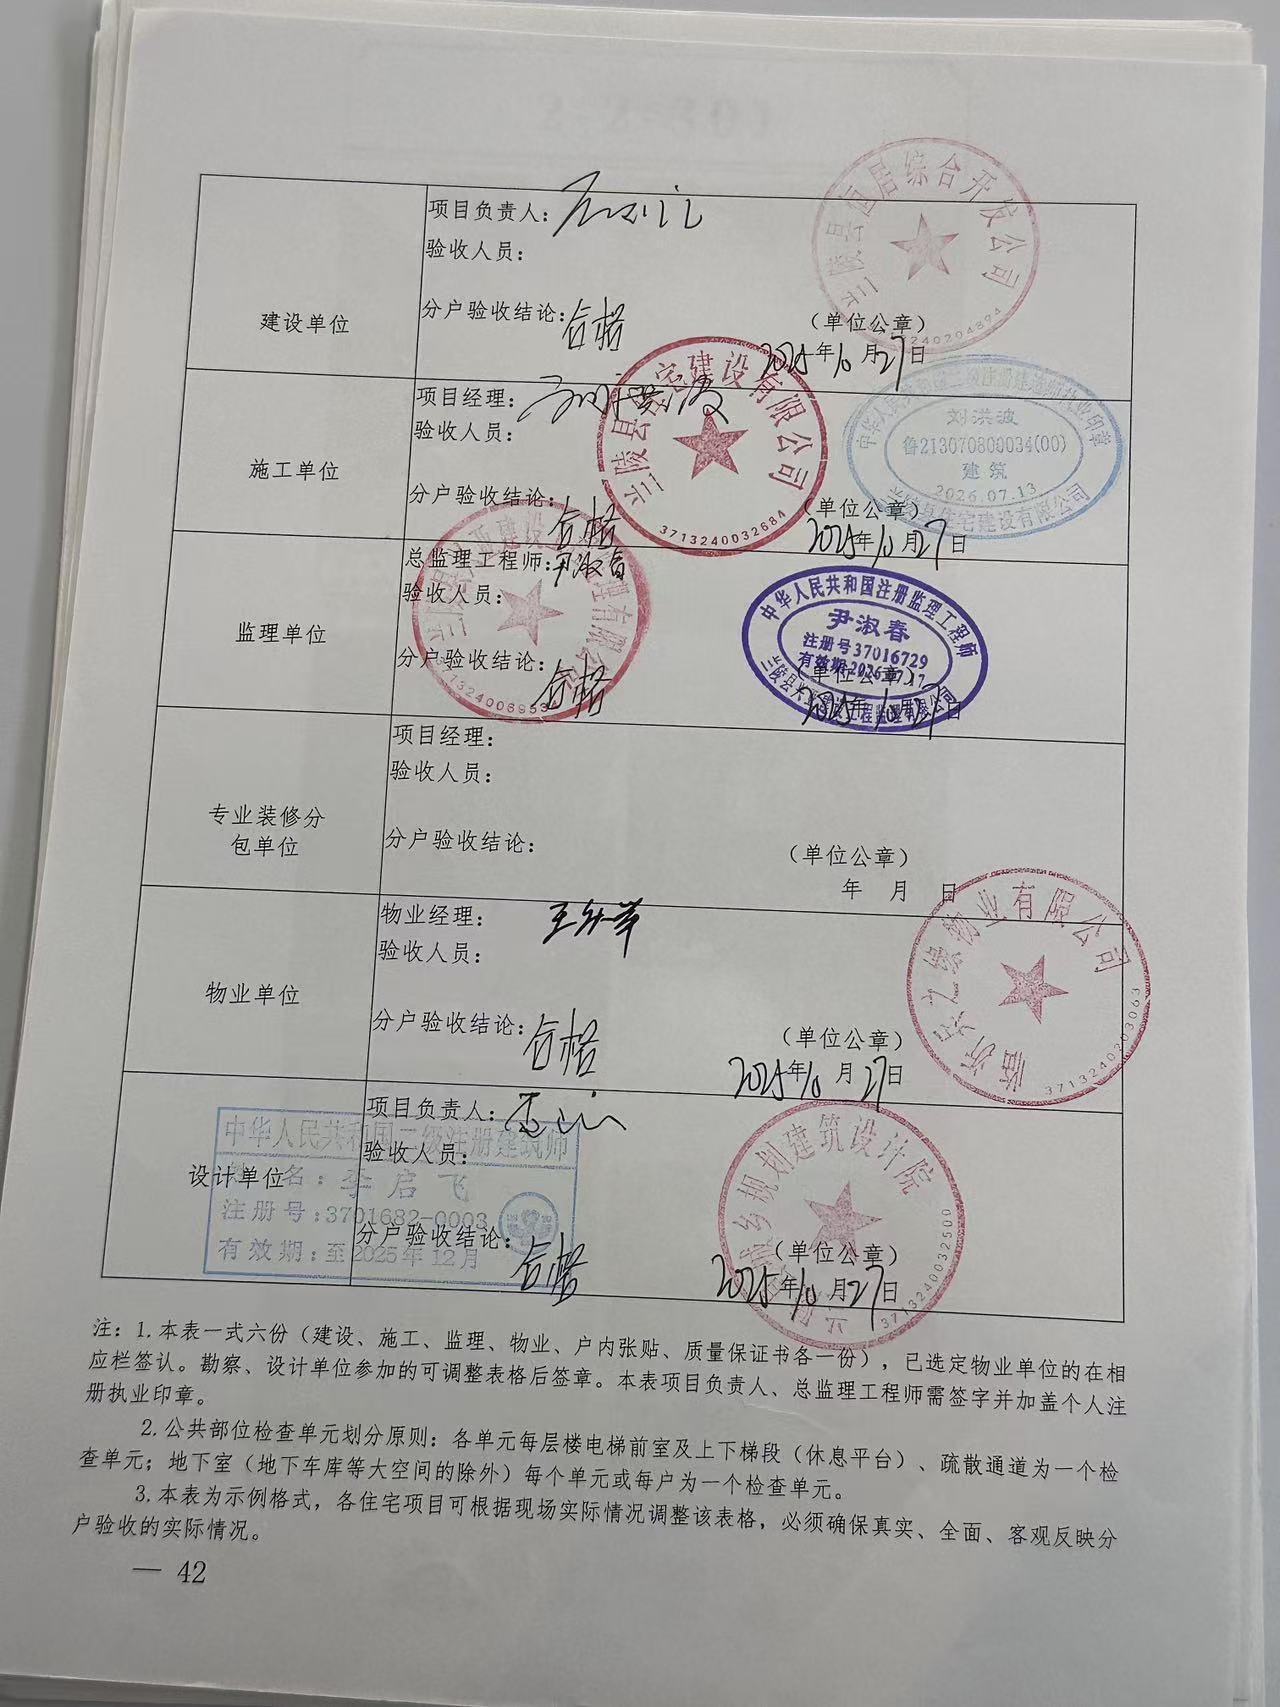 建设单位
项目负责人：
验收人员：
分户验收结论：合格
（单位公章）
2025年10月27日
兰陵县宜居综合开发公司
施工单位
项目经理：
验收人员：
分户验收结论：合格
（单位公章）
2025年10月27日
兰陵县住宅建设有限公司
3713240032684
中华人民共和国二级注册建造师执业印章
刘洪波
鲁213070800034(00)
建筑
2026.07.13
兰陵县住宅建设有限公司
监理单位
总监理工程师：尹淑春
验收人员：
分户验收结论：合格
（单位公章）
2025年10月27日
中华人民共和国注册监理工程师
尹淑春
注册号37016729
专业装修分
包单位
项目经理：
验收人员：
分户验收结论：
（单位公章）
年 月 日
物业单位
物业经理：
验收人员：
分户验收结论：合格
（单位公章）
2025年10月27日
物业有限公司
3713240203063
设计单位
项目负责人：
验收人员：
分户验收结论：合格
（单位公章）
2025年10月27日
城乡规划建筑设计院
3713240032500
中华人民共和国二级注册建筑师
名：李启飞
注册号：3701682-0003
有效期：至2025年12月
注：1.本表一式六份（建设、施工、监理、物业、户内张贴、质量保证书各一份），已选定物业单位的在相
应栏签认。勘察、设计单位参加的可调整表格后签章。本表项目负责人、总监理工程师需签字并加盖个人注
册执业印章。
2.公共部位检查单元划分原则：各单元每层楼电梯前室及上下梯段（休息平台）、疏散通道为一个检
查单元；地下室（地下车库等大空间的除外）每个单元或每户为一个检查单元。
3.本表为示例格式，各住宅项目可根据现场实际情况调整该表格，必须确保真实、全面、客观反映分
户验收的实际情况。
— 42